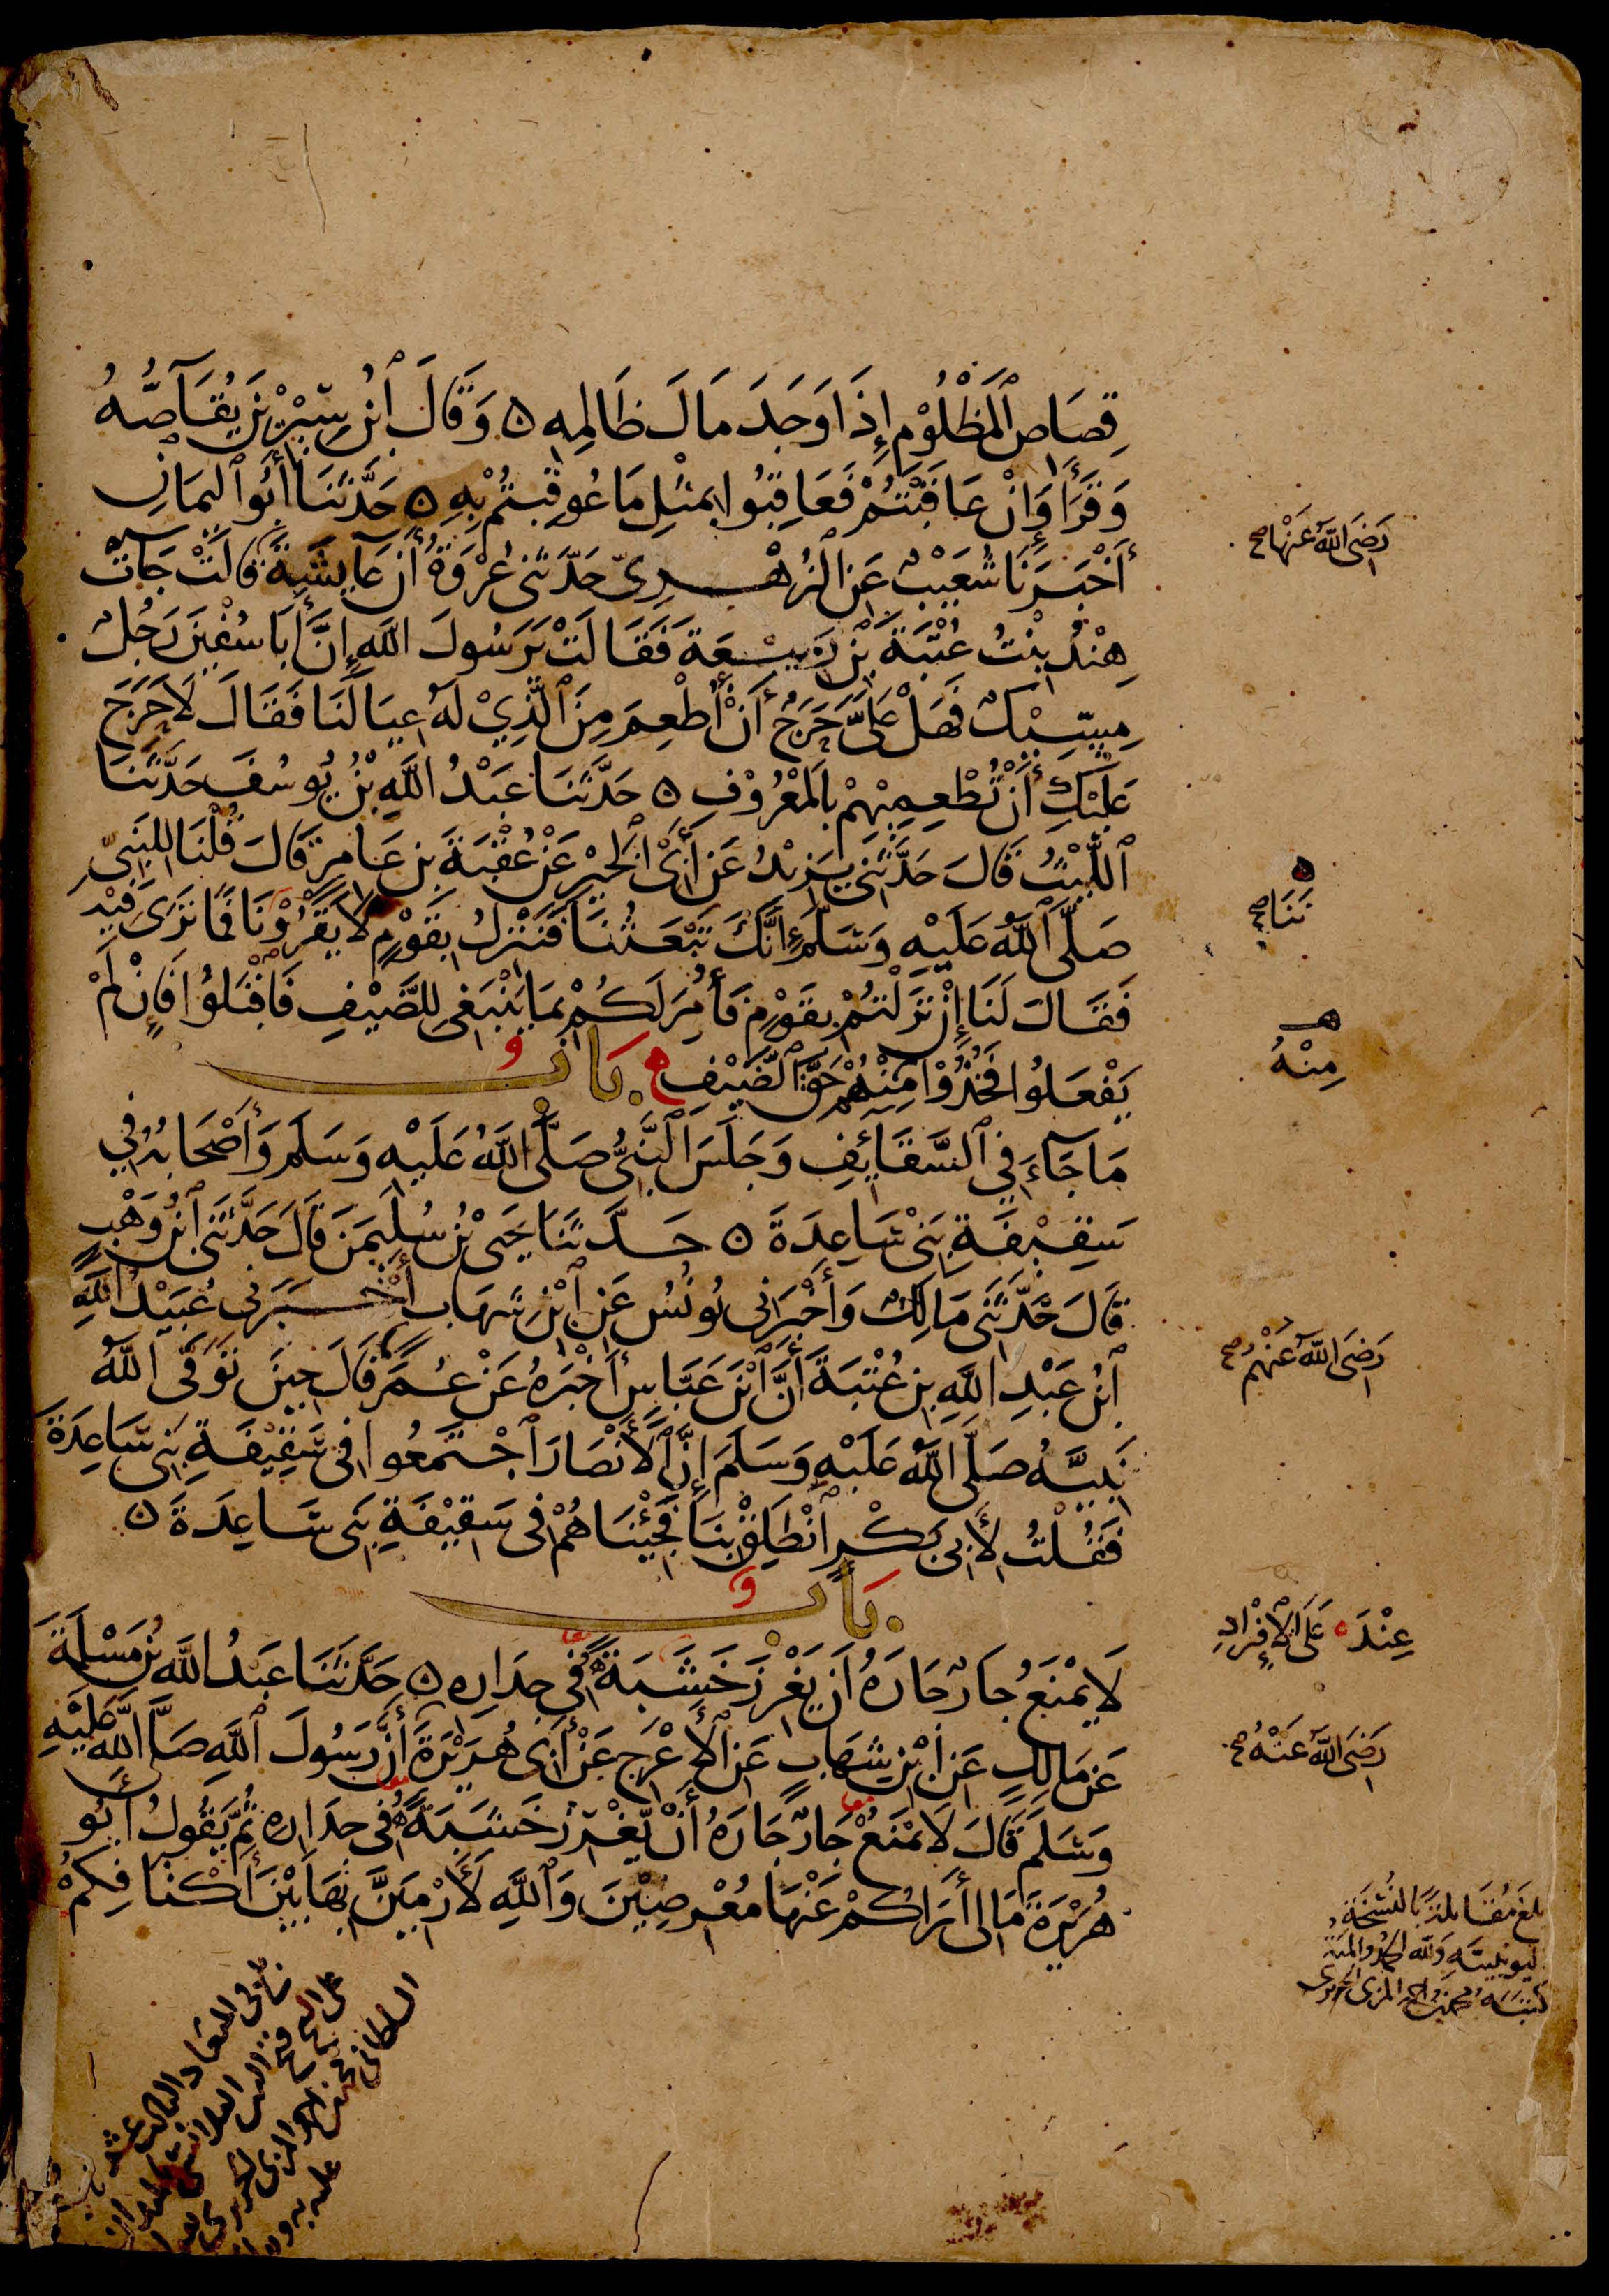 قِصَاصِ ٱلْمَظْلُوْمِ إِذَا وَجَدَ مَالَ ظَالِمِهِ ۞ وَقَالَ ٱبْنُ سِيْرِيْنَ يُقَاصُّهُ
وَقَرَأَ وَإِنْ عَاقَبْتُمْ فَعَاقِبُوا بِمِثْلِ مَا عُوقِبْتُمْ بِهِ ۞ حَدَّثَنَا أَبُو ٱلْيَمَانِ
أَخْبَرَنَا شُعَيْبٌ عَنِ ٱلزُّهْرِيِّ حَدَّثَنِي عُرْوَةُ أَنَّ عَآئِشَةَ قَالَتْ جَآءَتْ
رَضِيَ اللَّهُ عَنْهَا صح
هِنْدُ بِنْتُ عُتْبَةَ بْنِ رَبِيْعَةَ فَقَالَتْ يَرَسُولَ اللَّهِ إِنَّ أَبَا سُفْيَنَ رَجُلٌ
مِسِّيْكٌ فَهَلْ عَلَيَّ حَرَجٌ أَنْ أُطْعِمَ مِنَ ٱلَّذِيْ لَهُ عِيَالَنَا فَقَالَ لَا حَرَجَ
عَلَيْكِ أَنْ تُطْعِمِيْهِمْ بِالْمَعْرُوْفِ ۞ حَدَّثَنَا عَبْدُ اللَّهِ بْنُ يُوسُفَ حَدَّثَنَا
ٱللَّيْثُ قَالَ حَدَّثَنِي يَزِيْدُ عَنْ أَبِي ٱلْخَيْرِ عَنْ عُقْبَةَ بْنِ عَامِرٍ قَالَ قُلْنَا لِلنَّبِيِّ
صَلَّى ٱللَّهُ عَلَيْهِ وَسَلَّمَ إِنَّكَ تَبْعَثُنَا فَنَنْزِلُ بِقَوْمٍ لَا يَقْرُوْنَا فَمَا تَرَى فِيْهِ
نَنَا صح
فَقَالَ لَنَا إِنْ نَزَلْتُمْ بِقَوْمٍ فَأُمِرَ لَكُمْ بِمَا يَنْبَغِي لِلضَّيْفِ فَاقْبَلُوا فَإِنْ لَمْ
يَفْعَلُوا فَخُذُوْا مِنْهُمْ حَقَّ ٱلضَّيْفِ بَابُ
مِنْهُ
مَا جَآءَ فِي ٱلسَّقَائِفِ وَجَلَسَ ٱلنَّبِيُّ صَلَّى اللَّهُ عَلَيْهِ وَسَلَّمَ وَأَصْحَابُهُ فِي
سَقِيْفَةِ بَنِي سَاعِدَةَ ۞ حَدَّثَنَا يَحْيَى بْنُ سُلَيْمَنَ قَالَ حَدَّثَنِي ٱبْنُ وَهْبٍ
قَالَ حَدَّثَنِي مَالِكٌ وَأَخْبَرَنِي يُونُسُ عَنِ ٱبْنِ شِهَابٍ أَخْبَرَنِي عُبَيْدُ اللَّهِ
ٱبْنُ عَبْدِ اللَّهِ بْنِ عُتْبَةَ أَنَّ ٱبْنَ عَبَّاسٍ أَخْبَرَهُ عَنْ عُمَرَ قَالَ حِيْنَ تَوَفَّى اللَّهُ
رَضِيَ اللَّهُ عَنْهُمْ صح
نَبِيَّهُ صَلَّى اللَّهُ عَلَيْهِ وَسَلَّمَ إِنَّ ٱلْأَنْصَارَ ٱجْتَمَعُوا فِي سَقِيْفَةِ بَنِي سَاعِدَةَ
فَقُلْتُ لِأَبِي بَكْرٍ ٱنْطَلِقْ بِنَا فَجِئْنَاهُمْ فِي سَقِيْفَةِ بَنِي سَاعِدَةَ ۞
بَابُ
لَا يَمْنَعُ جَارٌ جَارَهُ أَنْ يَغْرِزَ خَشَبَةً فِي جِدَارِهِ ۞ حَدَّثَنَا عَبْدُ اللَّهِ بْنُ مَسْلَمَةَ
عِنْدَ ه عَلَى ٱلْإِفْرَادِ
عَنْ مَالِكٍ عَنِ ابْنِ شِهَابٍ عَنِ ٱلْأَعْرَجِ عَنْ أَبِي هُرَيْرَةَ أَنَّ رَسُولَ ٱللَّهِ صَلَّى اللَّهُ عَلَيْهِ
رَضِيَ اللَّهُ عَنْهُ صح
وَسَلَّمَ قَالَ لَا يَمْنَعْ جَارٌ جَارَهُ أَنْ يَغْرِزَ خَشَبَةً فِي جِدَارِهِ ثُمَّ يَقُولُ أَبُو
هُرَيْرَةَ مَا لِي أَرَاكُمْ عَنْهَا مُعْرِضِيْنَ وَٱللَّهِ لَأَرْمِيَنَّ بِهَا بَيْنَ أَكْنَافِكُمْ
بلغ مُقَابلة بالنُّسْخَة
اليونينيّة وَلله الحمد والمنة
كتبَه محمد بن احمد المزى الحريرى